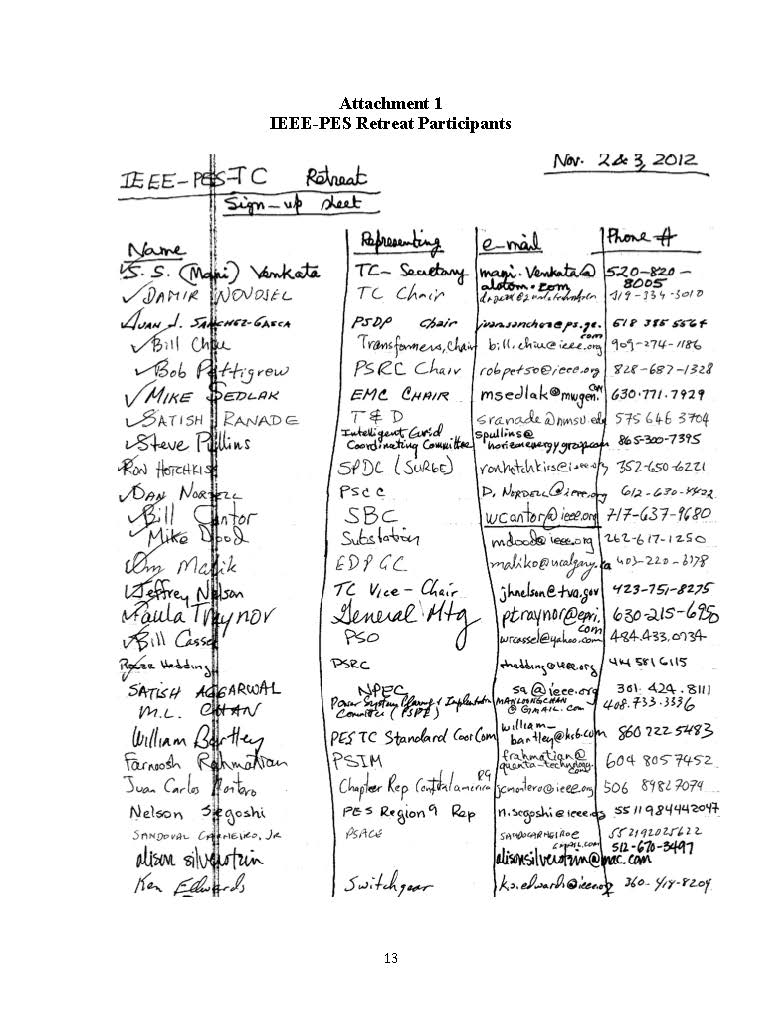 Attachment 1
IEEE-PES Retreat Participants
Nov. 2&3, 2012
IEEE-PES-TC Retreat
Sign-up sheet
Name Representing e-mail Phone #
✓S. S. (Mani) Venkata TC-Secretary mani.venkata@alstom.com 520-820-8005
✓DAMIR NOVOSEL TC Chair 919-334-3010
JUAN J. SANCHEZ-GASCA PSDP Chair juan.sanchez@ps.ge.com 518 385 5564
✓Bill Chiu Transformers, Chair bill.chiu@ieee.org 909-274-1186
✓Bob Pettigrew PSRC Chair robpetso@ieee.org 828-687-1328
✓MIKE SEDLAK EMC CHAIR msedlak@mwgen.com 630.771.7929
✓SATISH RANADE T & D sranade@nmsu.edu 575 646 3704
✓Steve Pullins Intelligent Grid Coordinating Committee spullins@horizonenergygroup.com 865-300-7395
RON HOTCHKISS SPDC (SURGE) ronhotchkiss@ieee.org 352-650-6221
✓DAN NORDELL PSCC D.NORDELL@ieee.org 612-630-4422
✓Bill Cantor SBC wcantor@ieee.org 717-637-9680
✓Mike Dood Substation mdood@ieee.org 262-617-1250
✓Om Malik EDPGC maliko@ucalgary.ca 403-220-6178
✓Jeffrey Nelson TC Vice-Chair jhnelson@tva.gov 423-751-8275
✓Paula Traynor General Mtg ptraynor@epri.com 630-215-6950
✓Bill Cassel PSO wrcassel@yahoo.com 484.433.0734
Roger Hedding PSRC rhedding@ieee.org 414 581 6115
SATISH AGGARWAL NPEC sa@ieee.org 301.424.8111
M.L. CHAN Power System Planning & Implementation Committee (PSPI) MANLOONGCHAN@GMAIL.com 408.733.3336
William Bartley PES TC Standard Coor Com william-bartley@hsb.com 860 722 5483
Farnoosh Rahmatian PSIM frahmatian@quanta-technology.com 604 8057452
Juan Carlos Montero Chapter Rep Central america R9 jcmontero@ieee.org 506 89827074
Nelson Segoshi PES Region 9 Rep n.segoshi@ieee.org 5511984442047
SANDOVAL CARNEIRO, JR PSACE SANDOCARNEIRO@GMAIL.COM 552192025622
alison silverstein alisonsilverstein@mac.com 512-670-3497
Ken Edwards Switchgear k.s.edwards@ieee.org 360-418-8204
13